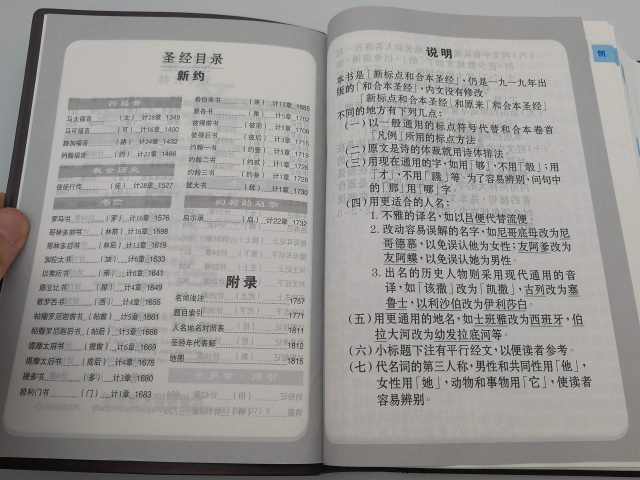 圣经目录
新约
四福音
马太福音 （太） 计28章 1349
马可福音 （可） 计16章 1400
路加福音 （路） 计24章 1432
约翰福音 （约） 计21章 1486
教会历史
使徒行传 （徒） 计28章 1527
书信
罗马书 （罗） 计16章 1576
哥林多前书 （林前） 计16章 1598
哥林多后书 （林后） 计13章 1619
加拉太书 （加） 计6章 1633
以弗所书 （弗） 计6章 1641
腓立比书 （腓） 计4章 1649
歌罗西书 （西） 计4章 1655
帖撒罗尼迦前书 （帖前） 计5章 1661
帖撒罗尼迦后书 （帖后） 计3章 1666
提摩太前书 （提前） 计6章 1669
提摩太后书 （提后） 计4章 1675
提多书 （多） 计3章 1680
腓利门书 （门） 计1章 1683
希伯来书 （来） 计13章 1685
雅各书 （雅） 计5章 1702
彼得前书 （彼前） 计5章 1708
彼得后书 （彼后） 计3章 1715
约翰一书 （约壹） 计5章 1719
约翰二书 （约贰） 计1章 1726
约翰三书 （约叁） 计1章 1728
犹大书 （犹） 计1章 1730
约翰的启示
启示录 （启） 计22章 1732
附录
名词浅注 1757
题目索引 1771
人名地名对照表 1811
圣经年代表解 1812
地图 1815
创
说明
本书是「新标点和合本圣经」，仍是一九一九年出
版的「和合本圣经」，内文没有修改。
「新标点和合本圣经」和原来「和合本圣经」
不同的地方有下列几点：
（一）以一般通用的标点符号代替和合本卷首
「凡例」所用的标点方法。
（二）原文是诗的体裁就用诗体排法。
（三）用现在通用的字，如用「够」，不用「彀」；用
「才」，不用「纔」等。为了容易辨别，问句中
的「那」用「哪」字。
（四）用更适合的人名：
1. 不雅的译名，如以吕便代替流便。
2. 改动容易误解的名字，如尼哥底母改为尼
哥德慕，以免误认他为女性；友阿爹改为
友阿蝶，以免误认她为男性。
3. 出名的历史人物则采用现代通用的音
译，如「该撒」改为「凯撒」，古列改为塞
鲁士，以利沙伯改为伊利莎白。
（五）用更通用的地名，如士班雅改为西班牙，伯
拉大河改为幼发拉底河等。
（六）小标题下注有平行经文，以便读者参考。
（七）代名词的第三人称，男性和共同性用「他」，
女性用「她」，动物和事物用「它」，使读者
容易辨别。